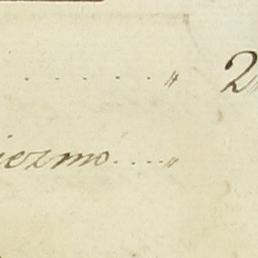 ........ „ 2
iezmo.... „